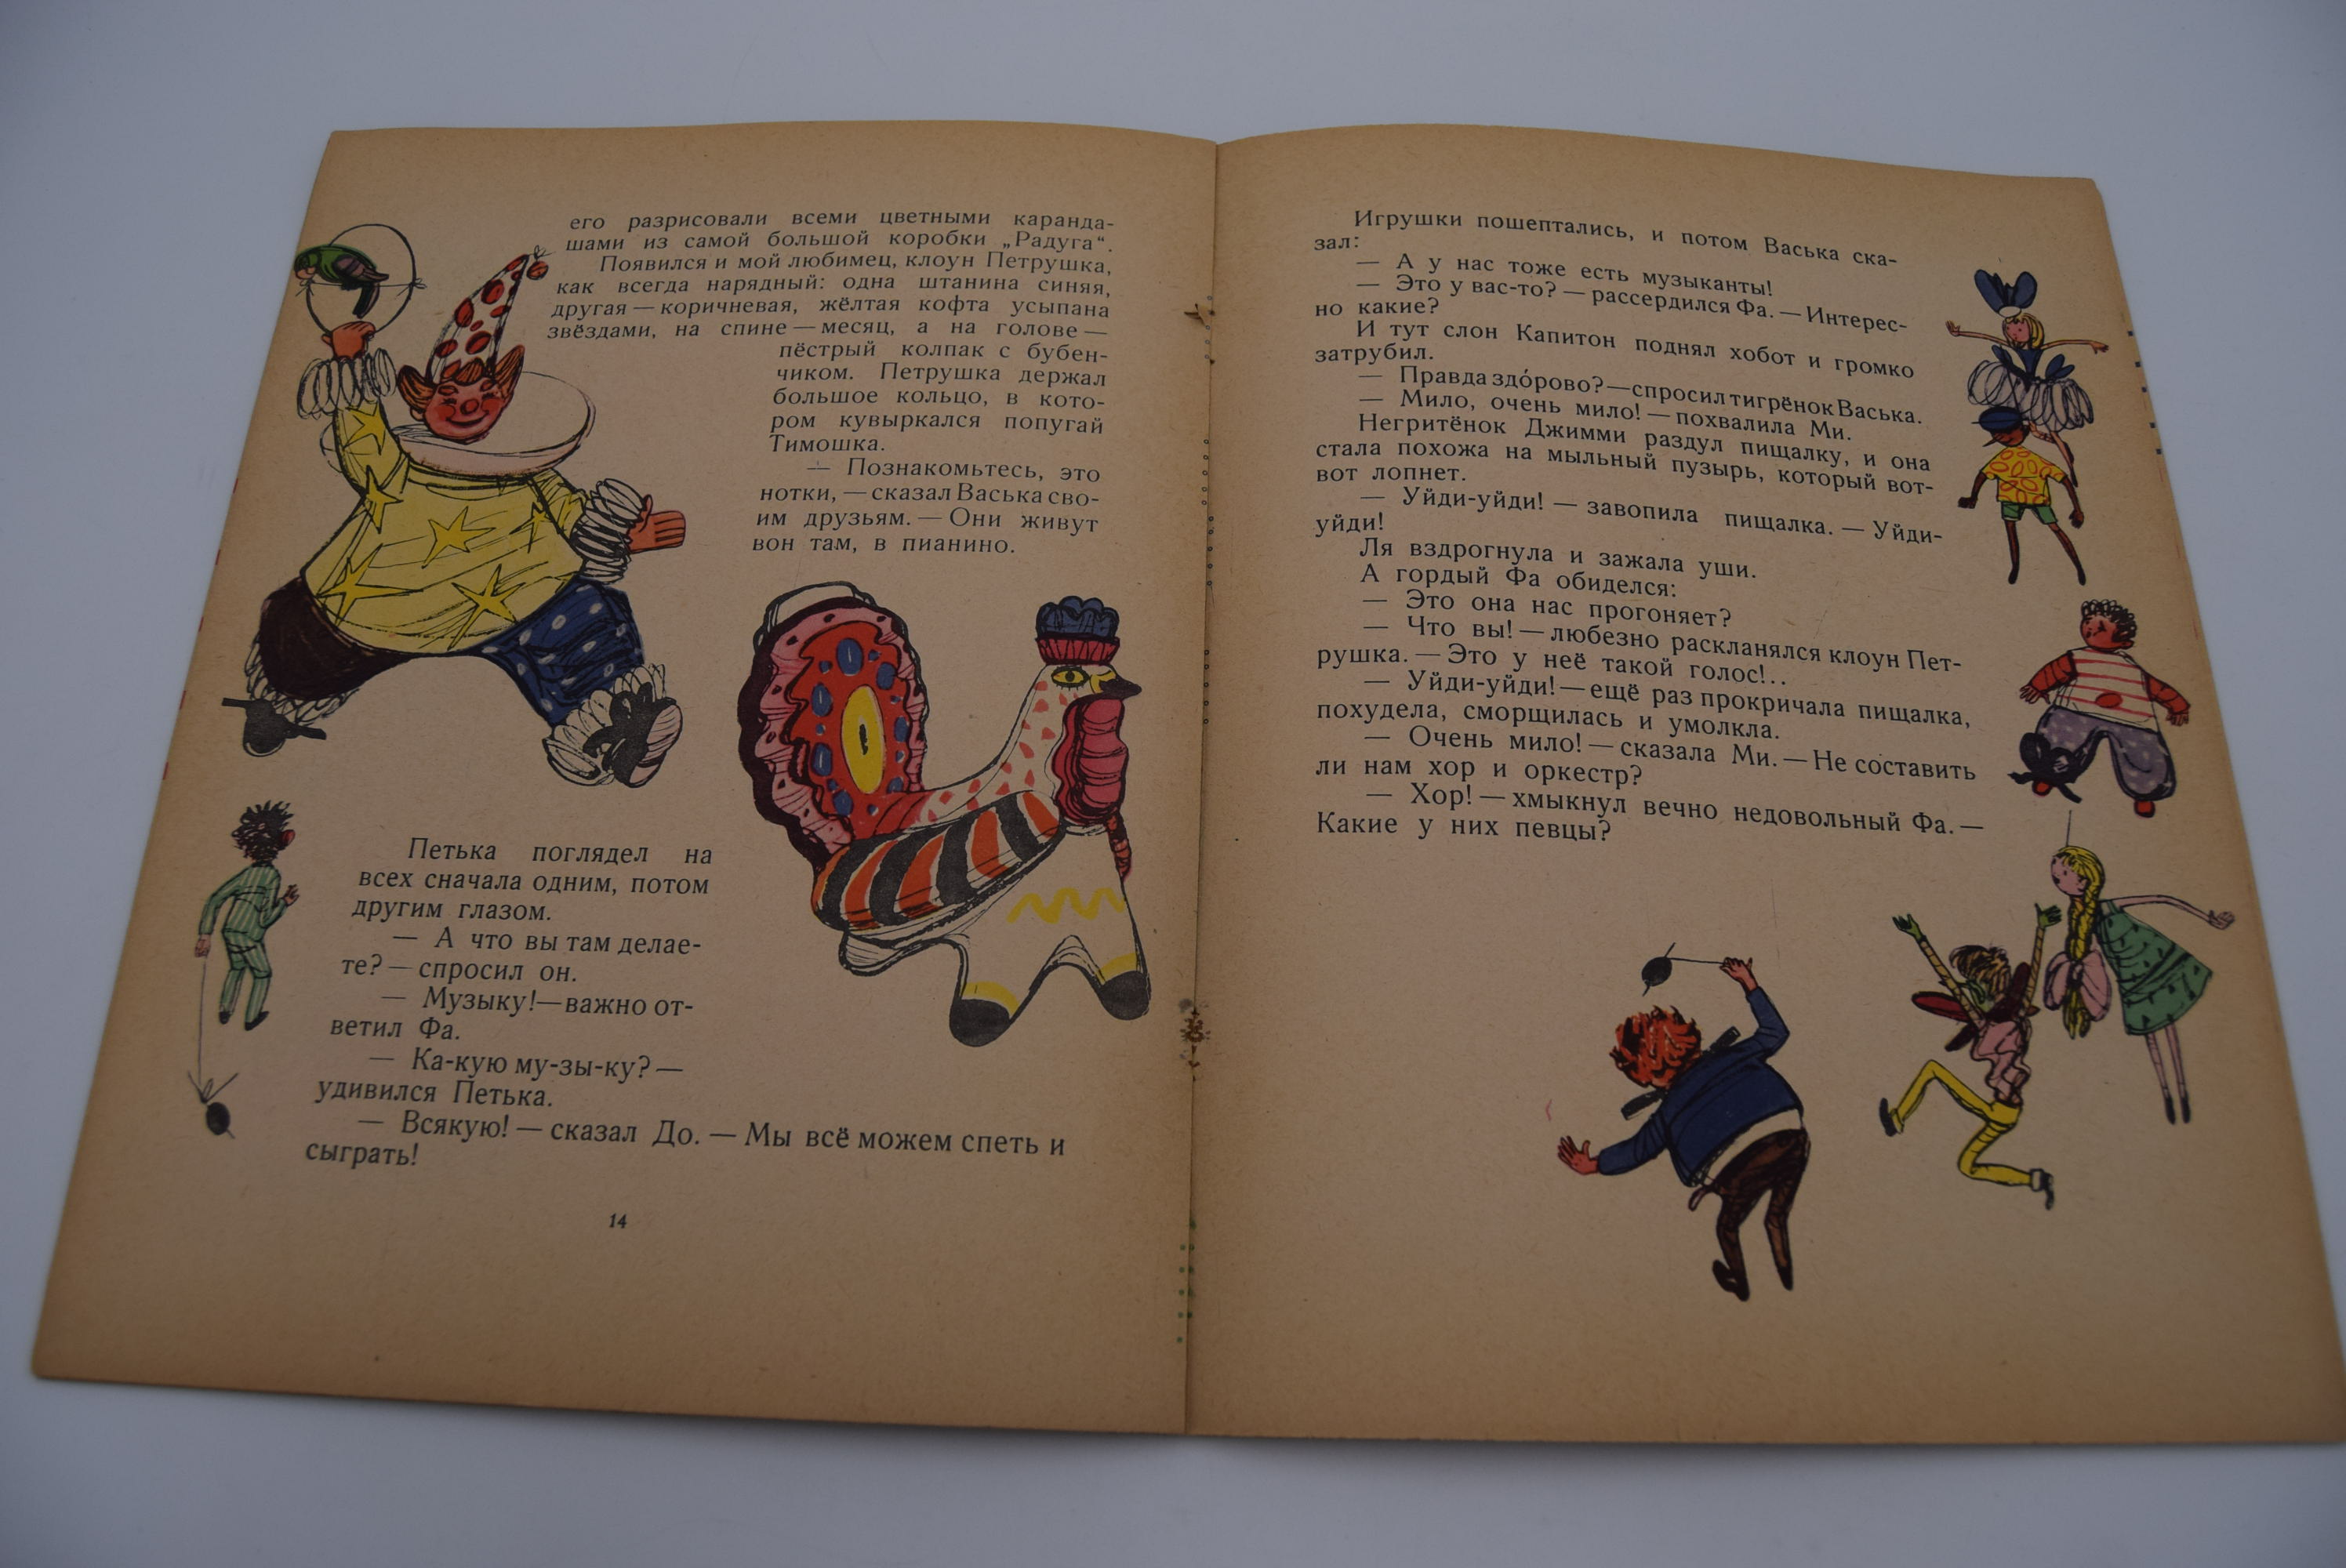 его разрисовали всеми цветными каранда-
шами из самой большой коробки „Радуга“.
Появился и мой любимец, клоун Петрушка,
как всегда нарядный: одна штанина синяя,
другая — коричневая, жёлтая кофта усыпана
звёздами, на спине — месяц, а на голове —
пёстрый колпак с бубен-
чиком. Петрушка держал
большое кольцо, в кото-
ром кувыркался попугай
Тимошка.
— Познакомьтесь, это
нотки, — сказал Васька сво-
им друзьям. — Они живут
вон там, в пианино.
Петька поглядел на
всех сначала одним, потом
другим глазом.
— А что вы там делае-
те? — спросил он.
— Музыку! — важно от-
ветил Фа.
— Ка-кую му-зы-ку? —
удивился Петька.
— Всякую! — сказал До. — Мы всё можем спеть и
сыграть!
14
Игрушки пошептались, и потом Васька ска-
зал:
— А у нас тоже есть музыканты!
— Это у вас-то? — рассердился Фа. — Интерес-
но какие?
И тут слон Капитон поднял хобот и громко
затрубил.
— Правда здо́рово? — спросил тигрёнок Васька.
— Мило, очень мило! — похвалила Ми.
Негритёнок Джимми раздул пищалку, и она
стала похожа на мыльный пузырь, который вот-
вот лопнет.
— Уйди-уйди! — завопила пищалка. — Уйди-
уйди!
Ля вздрогнула и зажала уши.
А гордый Фа обиделся:
— Это она нас прогоняет?
— Что вы! — любезно раскланялся клоун Пет-
рушка. — Это у неё такой голос!..
— Уйди-уйди! — ещё раз прокричала пищалка,
похудела, сморщилась и умолкла.
— Очень мило! — сказала Ми. — Не составить
ли нам хор и оркестр?
— Хор! — хмыкнул вечно недовольный Фа. —
Какие у них певцы?